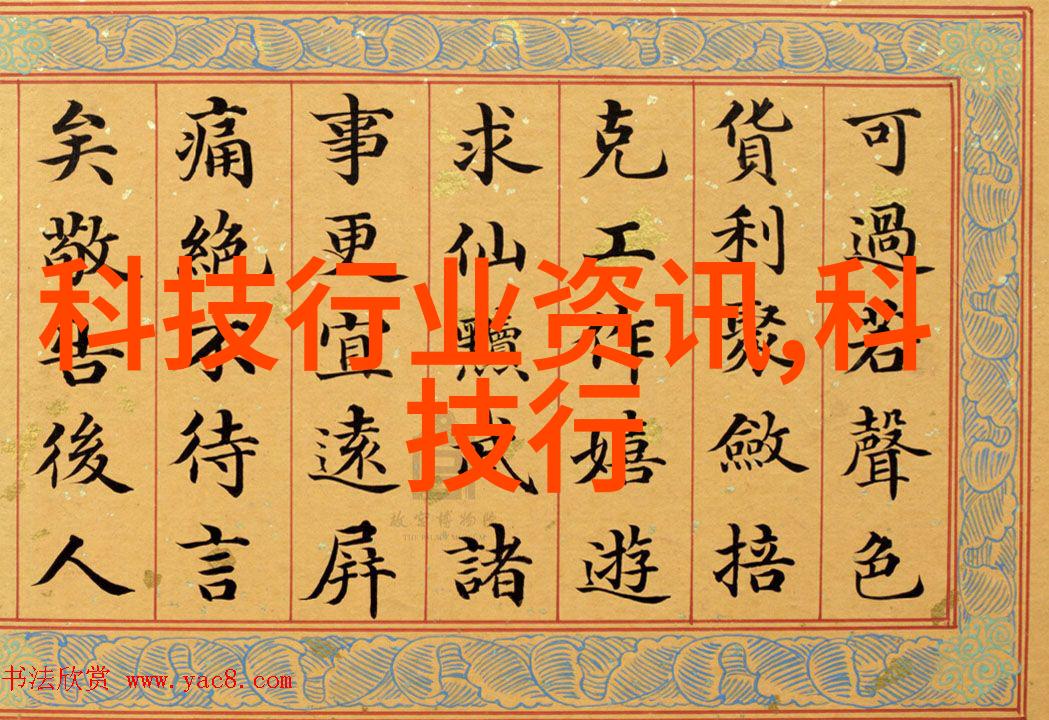 可過若聲色
貨利聚斂掊
克工作嬉遊
求仙黷武諸
事更宜遠屏
痛絕不待言
矣敬後人
科技行业资讯,科
技行
故宫博物院
书法欣赏 www.yac8.com